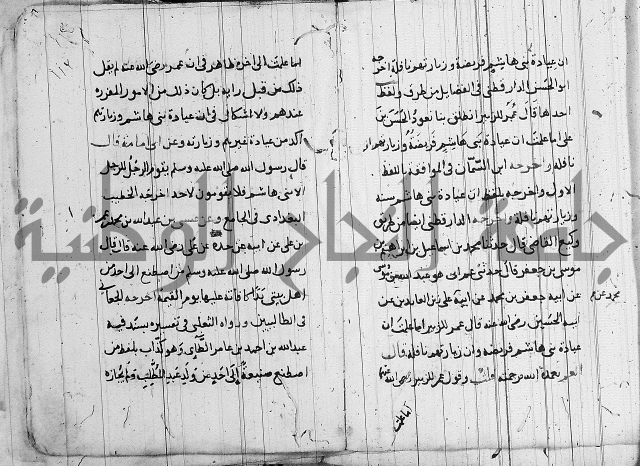 ان عيادة بنى هاشم فريضة وزيارتهم نافلة اخرجه
ابو الحسن الدار قطنى فى الفضايل من طرق ولفظ
احدها قال عمر للزبير انطلق بنا نعود الحسن بن
على اما علمت ان عيادة بنى هاشم فريضة وزيارتهم
نافلة وخرجه ابن السمان فى الموافقة باللفظ
الاول واخرجه بلفظ ان عيادة بنى هاشم سنة
وزيارتهم نافلة واخرجه الدار قطنى ايضا من طريق
وكيع القاضى قال حدثنا محمد بن اسماعيل بن ابراهيم بن
موسى بن جعفر قال حدثنى عم ابى هو عبد الله بن موسى
عن ابيه جعفر بن محمد عن ابيه على زين العابدين عن
محمد عن
ابيه الحسين رضى الله عنه قال عمر للزبير اما علمت ان
عيادة بنى هاشم فريضة وان زيارتهم نافلة قال
الله برحمته قلت وقول عمر للزبير رضى الله عنهما
اما علمت
اما علمت الى اخره ظاهر فى ان عمر رضى الله عنه لم يقل
ذلك من قبل رايه بل كان ذلك من الامور المقررة
عندهم ولا اشكال فى ان عيادة بنى هاشم وزيارتهم
آكد من عيادة غيرهم وزيارته وعن ابى امامة قال
قال رسول الله صلى الله عليه وسلم يقوم الرجل للرجل
الا بنى هاشم فلا يقومون لاحد اخرجه الخطيب
البغدادى فى الجامع وعن عيسى بن عبد الله بن محمد بن عمر
بن على عن ابيه عن جده عن على رضى الله عنه قال قال
رسول الله صلى الله عليه وسلم من اصطنع الى احد من
اهل بيتى يدا كافاته عليها يوم القيمة اخرجه الجعابى
فى الطالبيين ورواه الثعلبى فى تفسيره بسند فيه
عبد الله بن احمد بن عامر الطائى وهو كذاب بلفظ من
اصطنع صنيعة الى احد من ولد عبد المطلب ولم يجازه
جامعة النجاح الوطنية